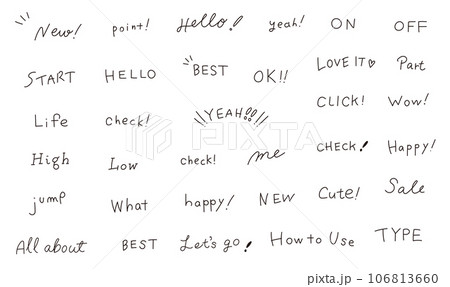 New! point! Hello! yeah! ON OFF
START HELLO BEST OK!! LOVE IT♡ Part
CLICK! Wow!
Life check! YEAH!!
High Low check! me CHECK! Happy!
jump What happy! NEW Cute! Sale
All about BEST Let's go! How to Use TYPE
PIXTA
pixta.jp - 106813660